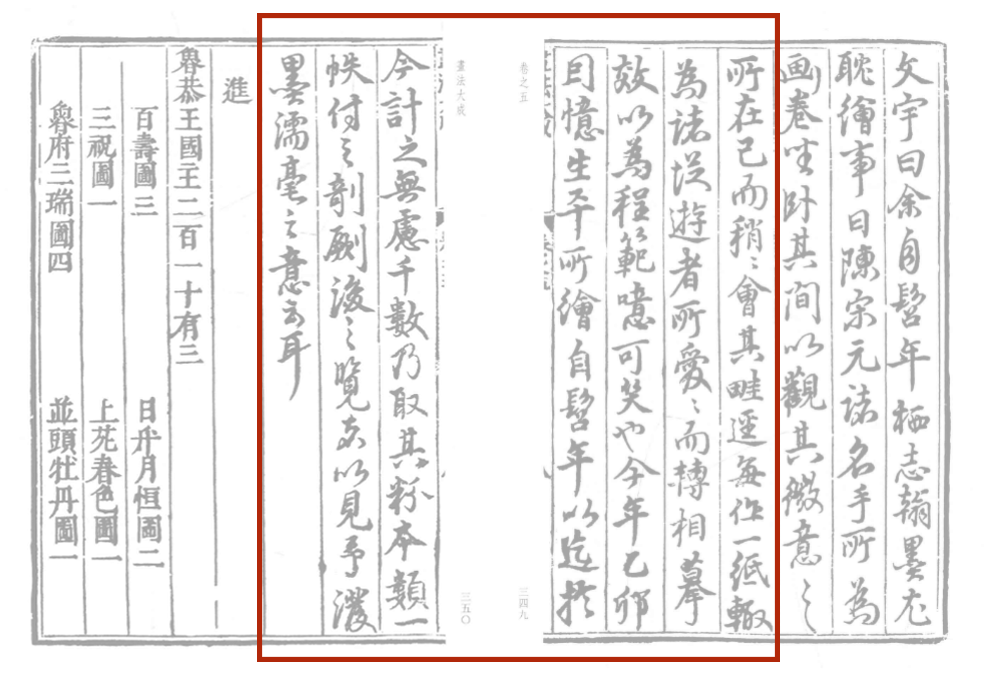 文宇曰余自髫年栖志翰墨尤
耽繪事日陳宋元諸名手所為
画卷坐卧其間以觀其微意之
所在已而稍〻會其畦逕每作一紙輙
為諸從遊者所愛〻而轉相摹
效以為程範噫可笑也今年乙卯
因憶生平所繪自髫年以迄於
卷之五
三四九
畫法大成
三五〇
今計之無慮千數乃取其粉本類一
帙付之剞劂後之覽者以見予潑
墨濡毫之意云耳
進
魯恭王國王二百一十有三
百壽圖三
日升月恒圖二
三祝圖一
上苑春色圖一
魯府三瑞圖四
並頭牡丹圖一